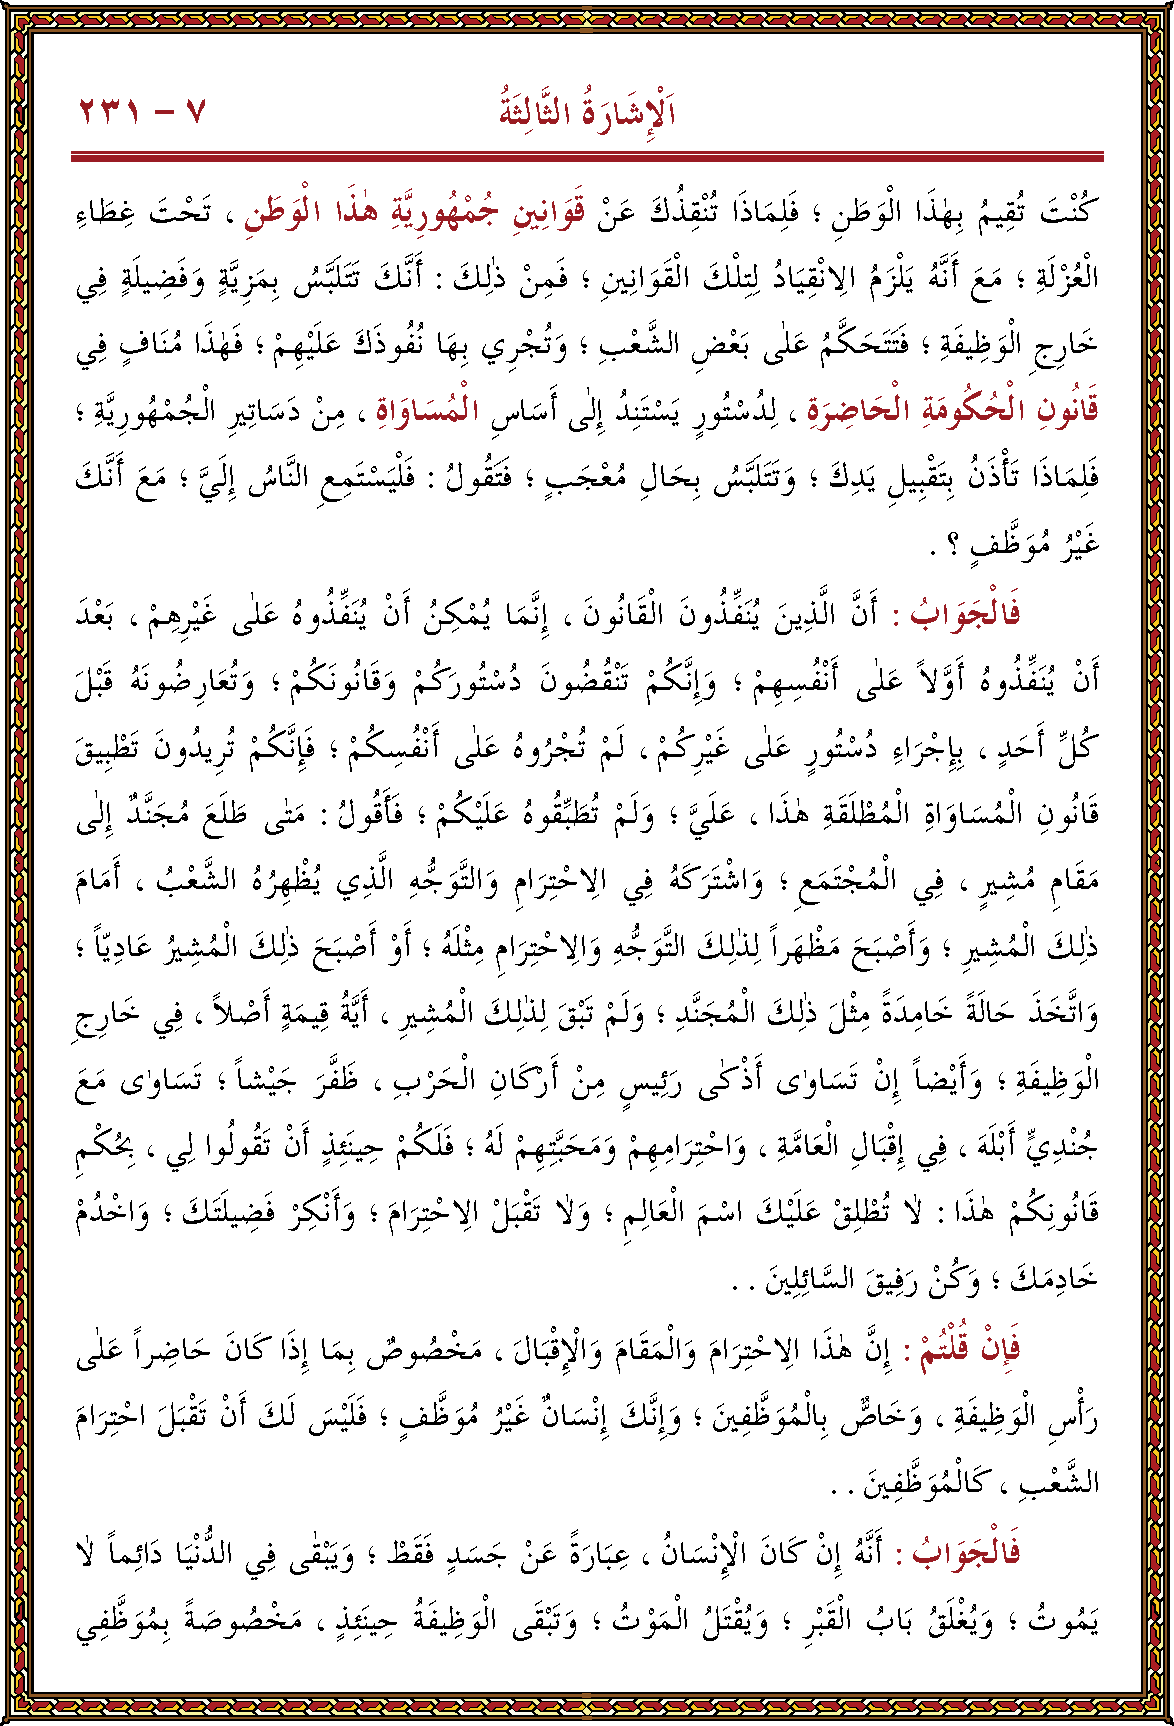 اَلْإِشَارَةُ الثَّالِثَةُ ٧ – ٢٣١
كُنْتَ تُقِيمُ بِهٰذَا الْوَطَنِ ؛ فَلِمَاذَا تُنْقِذُكَ عَنْ قَوَانِينِ جُمْهُورِيَّةِ هٰذَا الْوَطَنِ ، تَحْتَ غِطَاءِ
الْعُزْلَةِ ؛ مَعَ أَنَّهُ يَلْزَمُ الِانْقِيَادُ لِتِلْكَ الْقَوَانِينِ ؛ فَمِنْ ذٰلِكَ : أَنَّكَ تَتَلَبَّسُ بِمَزِيَّةٍ وَفَضِيلَةٍ فِي
خَارِجِ الْوَظِيفَةِ ؛ فَتَتَحَكَّمُ عَلٰى بَعْضِ الشَّعْبِ ؛ وَتُجْرِي بِهَا نُفُوذَكَ عَلَيْهِمْ ؛ فَهٰذَا مُنَافٍ فِي
قَانُونِ الْحُكُومَةِ الْحَاضِرَةِ ، لِدُسْتُورٍ يَسْتَنِدُ إِلٰى أَسَاسِ الْمُسَاوَاةِ ، مِنْ دَسَاتِيرِ الْجُمْهُورِيَّةِ ؛
فَلِمَاذَا تَأْذَنُ بِتَقْبِيلِ يَدِكَ ؛ وَتَتَلَبَّسُ بِحَالِ مُعْجَبٍ ؛ فَتَقُولُ : فَلْيَسْتَمِعِ النَّاسُ إِلَيَّ ؛ مَعَ أَنَّكَ
غَيْرُ مُوَظَّفٍ ؟ .
فَالْجَوَابُ : أَنَّ الَّذِينَ يُنَفِّذُونَ الْقَانُونَ ، إِنَّمَا يُمْكِنُ أَنْ يُنَفِّذُوهُ عَلٰى غَيْرِهِمْ ، بَعْدَ
أَنْ يُنَفِّذُوهُ أَوَّلاً عَلٰى أَنْفُسِهِمْ ؛ وَإِنَّكُمْ تَنْقُضُونَ دُسْتُورَكُمْ وَقَانُونَكُمْ ؛ وَتُعَارِضُونَهُ قَبْلَ
كُلِّ أَحَدٍ ، بِإِجْرَاءِ دُسْتُورٍ عَلٰى غَيْرِكُمْ ، لَمْ تُجْرُوهُ عَلٰى أَنْفُسِكُمْ ؛ فَإِنَّكُمْ تُرِيدُونَ تَطْبِيقَ
قَانُونِ الْمُسَاوَاةِ الْمُطْلَقَةِ هٰذَا ، عَلَيَّ ؛ وَلَمْ تُطَبِّقُوهُ عَلَيْكُمْ ؛ فَأَقُولُ : مَتٰى طَلَعَ مُجَنَّدٌ إِلٰى
مَقَامِ مُشِيرٍ ، فِي الْمُجْتَمَعِ ؛ وَاشْتَرَكَهُ فِي الِاحْتِرَامِ وَالتَّوَجُّهِ الَّذِي يُظْهِرُهُ الشَّعْبُ ، أَمَامَ
ذٰلِكَ الْمُشِيرِ ؛ وَأَصْبَحَ مَظْهَراً لِذٰلِكَ التَّوَجُّهِ وَالِاحْتِرَامِ مِثْلَهُ ؛ أَوْ أَصْبَحَ ذٰلِكَ الْمُشِيرُ عَادِيّاً ؛
وَاتَّخَذَ حَالَةً خَامِدَةً مِثْلَ ذٰلِكَ الْمُجَنَّدِ ؛ وَلَمْ تَبْقَ لِذٰلِكَ الْمُشِيرِ ، أَيَّةُ قِيمَةٍ أَصْلاً ، فِي خَارِجِ
الْوَظِيفَةِ ؛ وَأَيْضاً إِنْ تَسَاوٰى أَذْكٰى رَئِيسٍ مِنْ أَرْكَانِ الْحَرْبِ ، ظَفَّرَ جَيْشاً ؛ تَسَاوٰى مَعَ
جُنْدِيٍّ أَبْلَهَ ، فِي إِقْبَالِ الْعَامَّةِ ، وَاحْتِرَامِهِمْ وَمَحَبَّتِهِمْ لَهُ ؛ فَلَكُمْ حِينَئِذٍ أَنْ تَقُولُوا لِي ، بِحُكْمِ
قَانُونِكُمْ هٰذَا : لاٰ تُطْلِقْ عَلَيْكَ اسْمَ الْعَالِمِ ؛ وَلاٰ تَقْبَلْ الِاحْتِرَامَ ؛ وَأَنْكِرْ فَضِيلَتَكَ ؛ وَاخْدُمْ
خَادِمَكَ ؛ وَكُنْ رَفِيقَ السَّائِلِينَ . .
فَإِنْ قُلْتُمْ : إِنَّ هٰذَا الِاحْتِرَامَ وَالْمَقَامَ وَالْإِقْبَالَ ، مَخْصُوصٌ بِمَا إِذَا كَانَ حَاضِراً عَلٰى
رَأْسِ الْوَظِيفَةِ ، وَخَاصٌّ بِالْمُوَظَّفِينَ ؛ وَإِنَّكَ إِنْسَانٌ غَيْرُ مُوَظَّفٍ ؛ فَلَيْسَ لَكَ أَنْ تَقْبَلَ احْتِرَامَ
الشَّعْبِ ، كَالْمُوَظَّفِينَ . .
فَالْجَوَابُ : أَنَّهُ إِنْ كَانَ الْإِنْسَانُ ، عِبَارَةً عَنْ جَسَدٍ فَقَطْ ؛ وَيَبْقٰى فِي الدُّنْيَا دَائِماً لاٰ
يَمُوتُ ؛ وَيُغْلَقُ بَابُ الْقَبْرِ ؛ وَيُقْتَلُ الْمَوْتُ ؛ وَتَبْقَى الْوَظِيفَةُ حِينَئِذٍ ، مَخْصُوصَةً بِمُوَظَّفِي